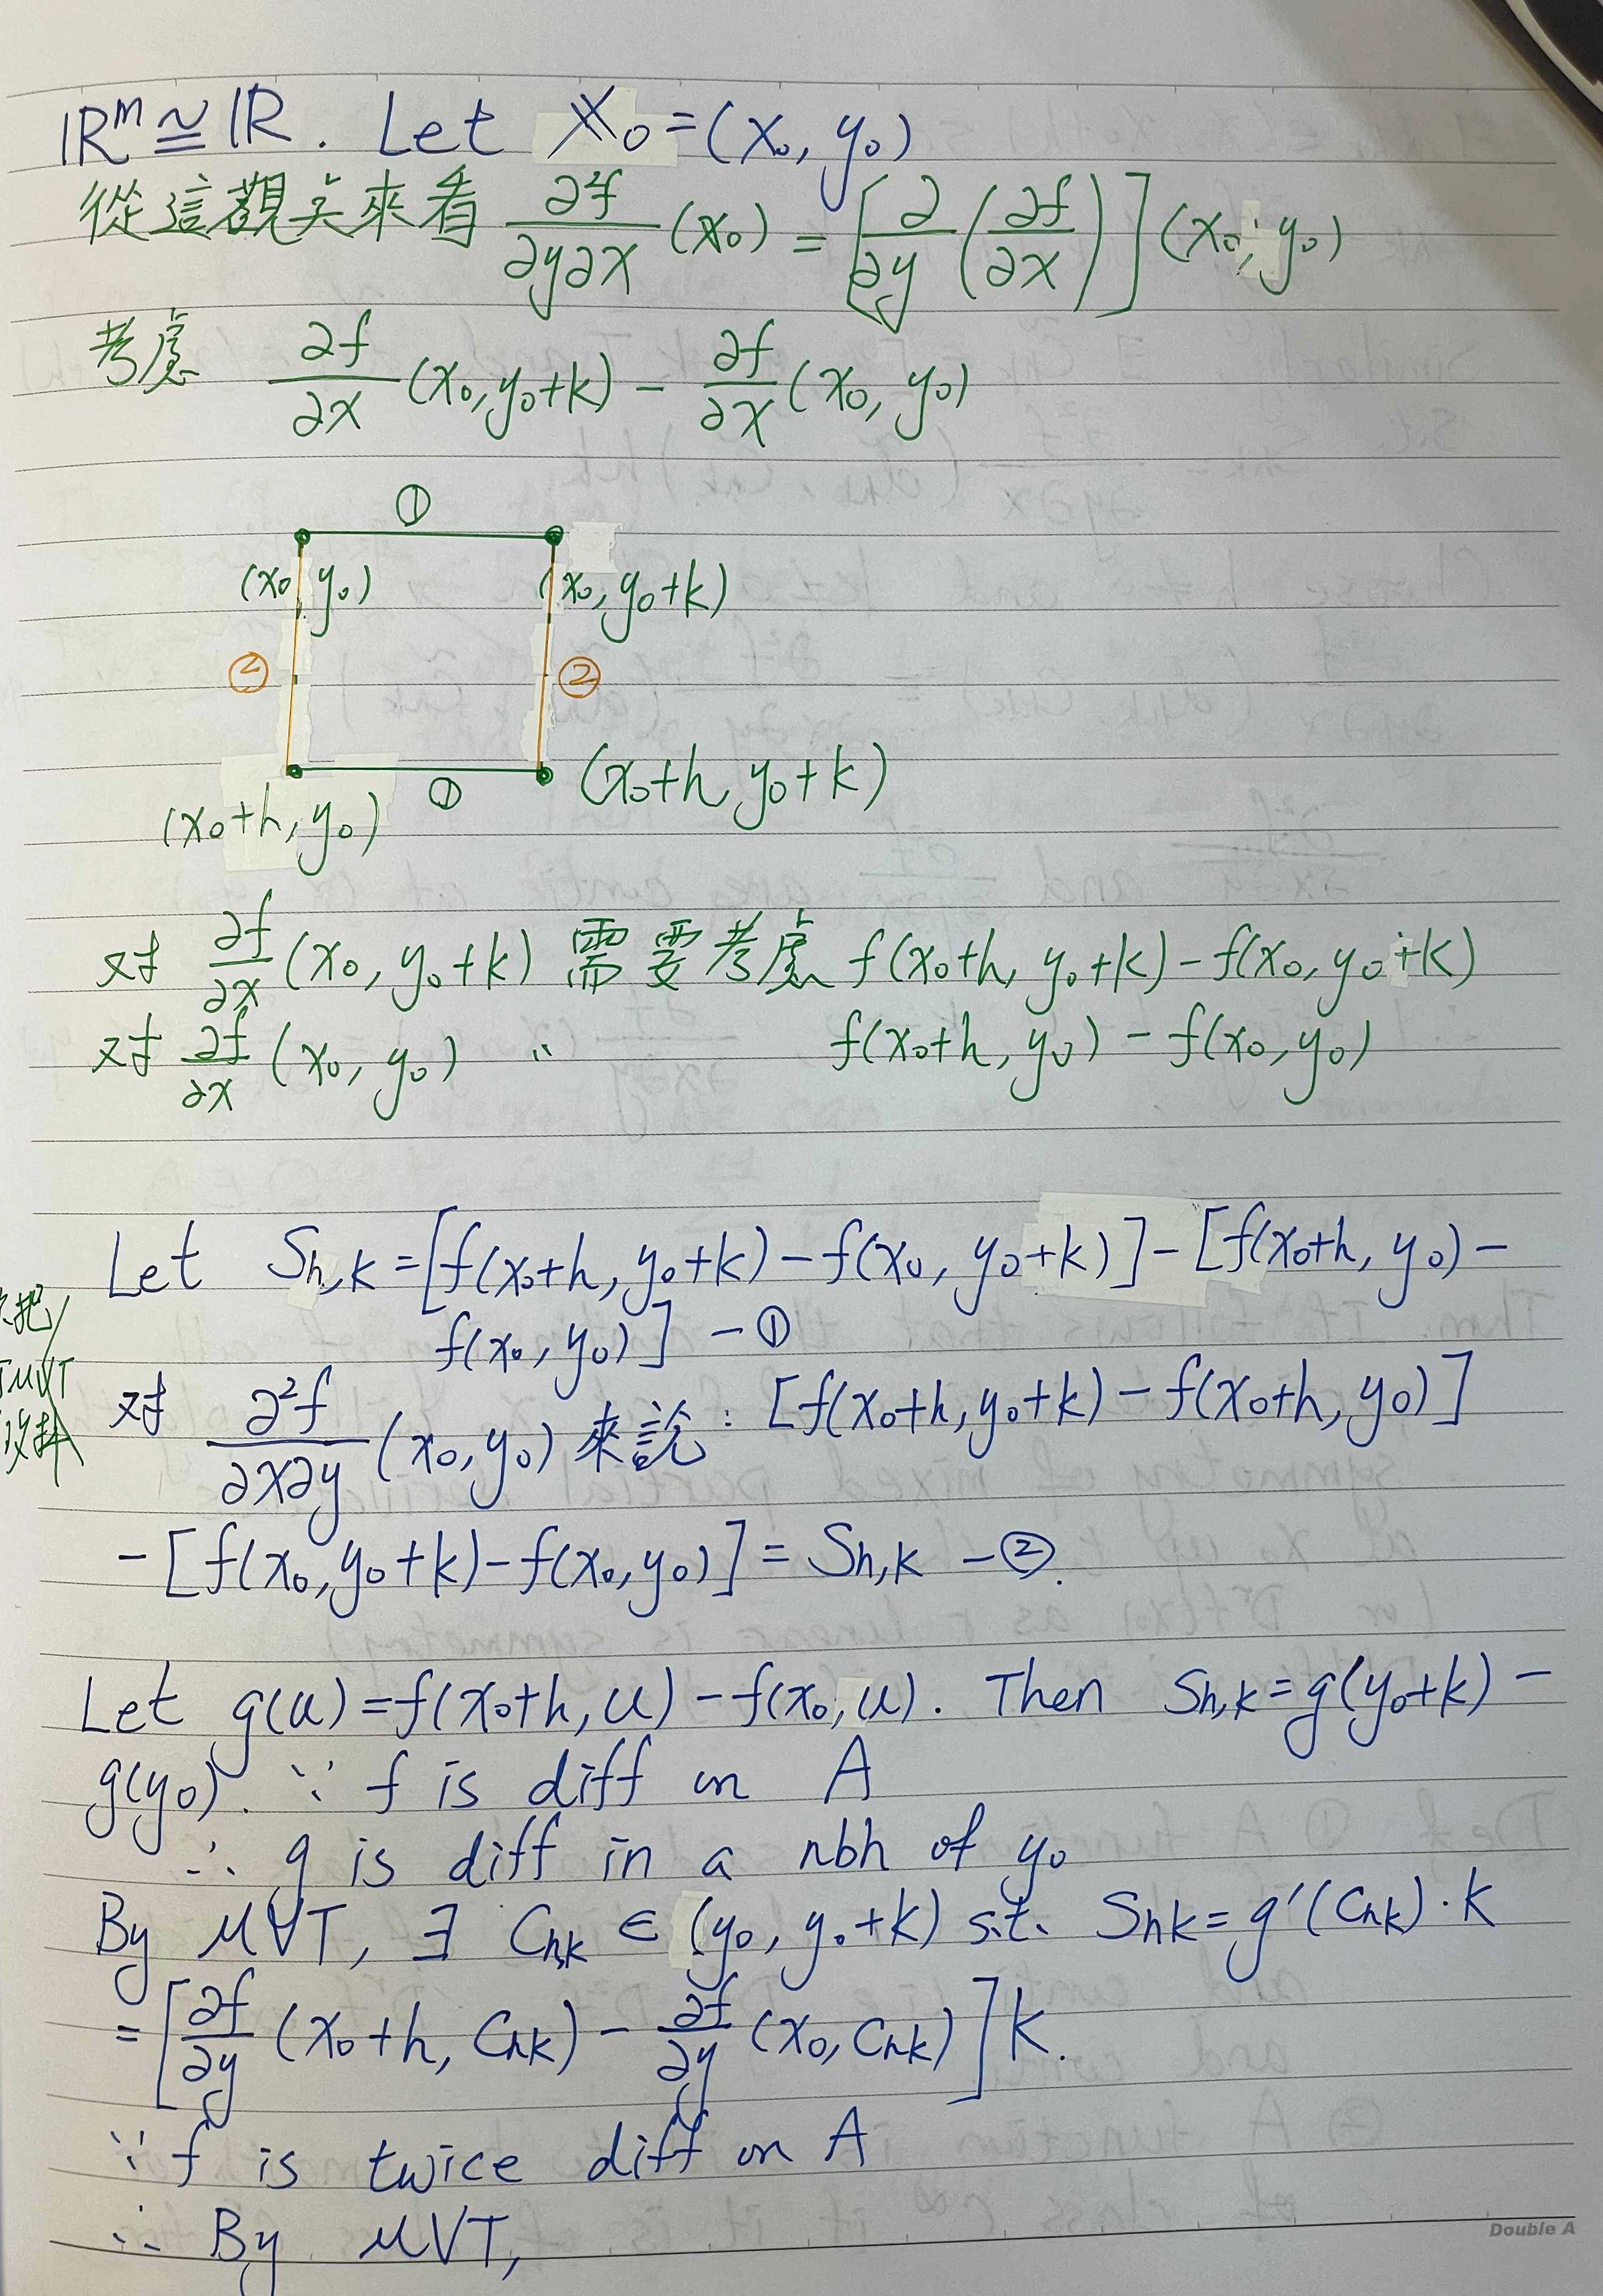 ℝᵐ ≅ ℝ. Let 𝕏₀ = (x₀, y₀)
從這觀点來看 ∂²f/∂y∂x (𝕏₀) = [∂/∂y (∂f/∂x)] (x₀, y₀)
考慮 ∂f/∂x (x₀, y₀+k) − ∂f/∂x (x₀, y₀)
①
(x₀, y₀) (x₀, y₀+k)
② ②
(x₀+h, y₀) ① (x₀+h, y₀+k)
对 ∂f/∂x (x₀, y₀+k) 需要考慮 f(x₀+h, y₀+k) − f(x₀, y₀+k)
对 ∂f/∂x (x₀, y₀) 〃 f(x₀+h, y₀) − f(x₀, y₀)
Let Sh,k = [f(x₀+h, y₀+k) − f(x₀, y₀+k)] − [f(x₀+h, y₀) −
f(x₀, y₀)] − ①
把
MVT
对 ∂²f/∂x∂y (x₀, y₀) 來說 : [f(x₀+h, y₀+k) − f(x₀+h, y₀)]
− [f(x₀, y₀+k) − f(x₀, y₀)] = Sh,k − ②.
Let g(u) = f(x₀+h, u) − f(x₀, u). Then Sh,k = g(y₀+k) −
g(y₀). ∵ f is diff on A
∴ g is diff in a nbh of y₀
By MVT, ∃ Ch,k ∈ (y₀, y₀+k) s.t. Shk = g′(Chk)·k
= [∂f/∂y (x₀+h, Chk) − ∂f/∂y (x₀, Chk)] k.
∵ f is twice diff on A
∴ By MVT,
Double A